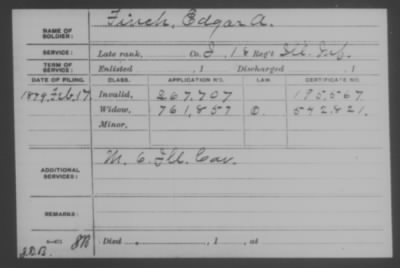 NAME OF SOLDIER: Finch, Edgar A.
SERVICE: Late rank, Co. I, 18 Reg't Ill. Inf.
TERM OF SERVICE: Enlisted , 1 Discharged , 1
DATE OF FILING. CLASS. APPLICATION NO. LAW. CERTIFICATE NO.
1879 Feb. 17. Invalid, 267,707 195,567
Widow, 761,857 D. 542,821
Minor,
ADDITIONAL SERVICES: M. 6. Ill. Cav.
REMARKS:
Died , 1 , at